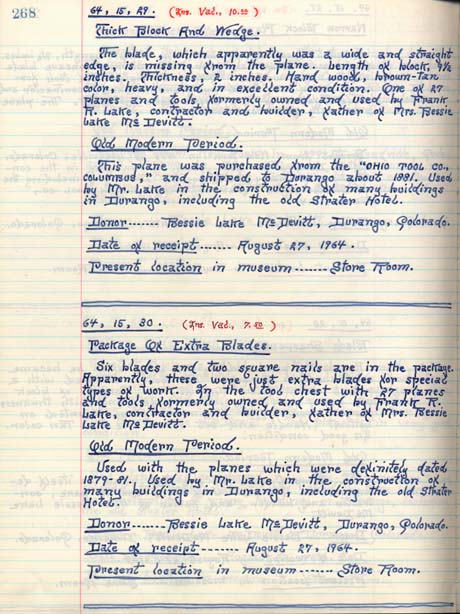 268
64, 15, 29. (Ins. Val., 10.00)
Thick Block And Wedge.
The blade, which apparently was a wide and straight
edge, is missing from the plane. Length of block, 9½
inches. Thickness, 2 inches. Hard wood, brown-tan
color, heavy, and in excellent condition. One of 27
planes and tools, formerly owned and used by Frank
R. Lake, contractor and builder, father of Mrs. Bessie
Lake McDevitt.
Old Modern Period.
This plane was purchased from the "OHIO TOOL CO.,
COLUMBUS," and shipped to Durango about 1881. Used
by Mr. Lake in the construction of many buildings
in Durango, including the old Strater Hotel.
Donor----- Bessie Lake McDevitt, Durango, Colorado.
Date of receipt------- August 27, 1964.
Present location in museum------- Store Room.
64, 15, 30. (Ins. Val., 7.50)
Package Of Extra Blades.
Six blades and two square nails are in the package.
Apparently, these were just extra blades for special
types of work. In the tool chest with 27 planes
and tools, formerly owned and used by Frank R.
Lake, contractor and builder, father of Mrs. Bessie
Lake McDevitt.
Old Modern Period.
Used with the planes which were definitely dated
1879-81. Used by Mr. Lake in the construction of
many buildings in Durango, including the old Strater
Hotel.
Donor-----Bessie Lake McDevitt, Durango, Colorado.
Date of receipt------- August 27, 1964.
Present location in museum------- Store Room.